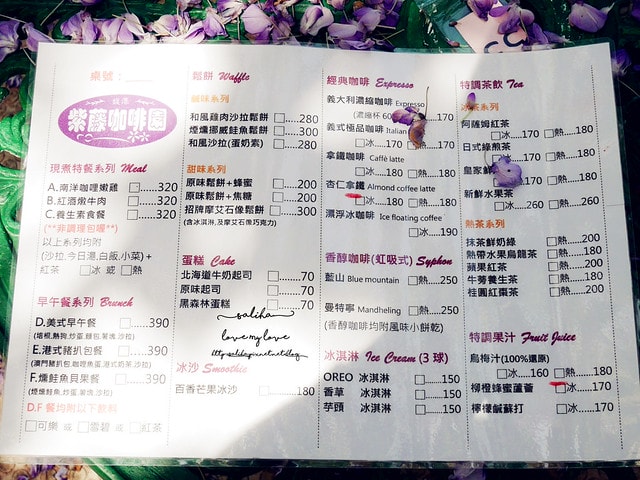 桌號：
淡水
紫藤咖啡園
現煮特餐系列 Meal
A.南洋咖哩嫩雞 □......320
B.紅酒燉牛肉 □......320
C.養生素食餐 □......320
(**非調理包喔**)
以上系列均附
(沙拉,今日湯,白飯,小菜) +
紅茶 □冰 或 □熱
早午餐系列 Brunch
D.美式早午餐 □......390
E.港式豬扒包餐 □......390
F.燻鮭魚貝果餐 □......390
□可樂 或 □雪碧 或 □紅茶
鬆餅 Waffle
鹹味系列
和風雞肉沙拉鬆餅 □......280
煙燻挪威鮭魚鬆餅 □......300
和風沙拉(蛋奶素) □......280
甜味系列
原味鬆餅+蜂蜜 □......200
原味鬆餅+焦糖 □......200
招牌摩艾石像鬆餅 □......300
(含冰淇淋,及摩艾石像巧克力)
蛋糕 Cake
北海道牛奶起司 □........70
原味起司 □........70
黑森林蛋糕 □........70
saliha
love my love
冰沙 Smoothie
百香芒果冰沙 □.......180
經典咖啡 Espresso
義大利濃縮咖啡 Espresso
義式極品咖啡 Italian
□冰......170 □熱......170
拿鐵咖啡 Caffè latte
□冰......180 □熱......180
杏仁拿鐵 Almond coffee latte
□冰......180 □熱......180
漂浮冰咖啡 Ice floating coffee
□冰......190
香醇咖啡(虹吸式) Syphon
藍山 Blue mountain □熱......250
曼特寧 Mandheling □熱......250
(香醇咖啡均附風味小餅乾)
冰淇淋 Ice Cream (3 球)
OREO 冰淇淋 □......150
香草 冰淇淋 □......150
芋頭 冰淇淋 □......150
特調茶飲 Tea
冰茶系列
阿薩姆紅茶
□冰......170 □熱......180
日式綠煎茶
□熱......180
皇家
□冰......170 □熱......180
新鮮水果茶
□冰......260 □熱......260
熱茶系列
抹茶鮮奶綠 □熱......200
熱帶水果烏龍茶 □熱......180
蘋果紅茶 □熱......200
牛蒡養生茶 □熱......180
桂圓紅棗茶 □熱......200
特調果汁 Fruit Juice
烏梅汁(100%還原)
□冰......160 □熱......180
柳橙蜂蜜蘆薈 □冰......170
檸檬鹹蘇打 □冰......170